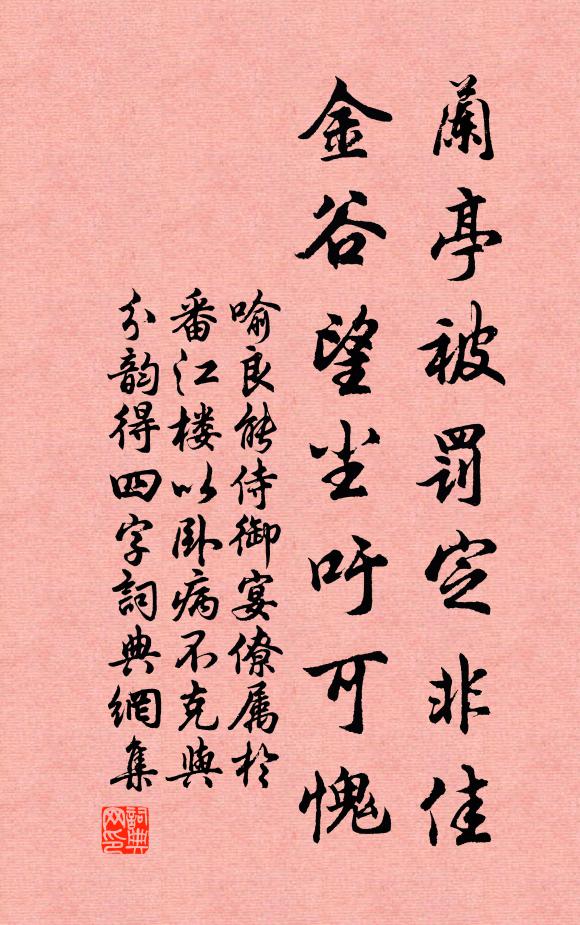 蘭亭被罰定非佳
金谷望尘吁可愧
喻良能侍御宴僚属於
番江楼以卧病不克與
分韵得四字詞典網集
詞典
网印